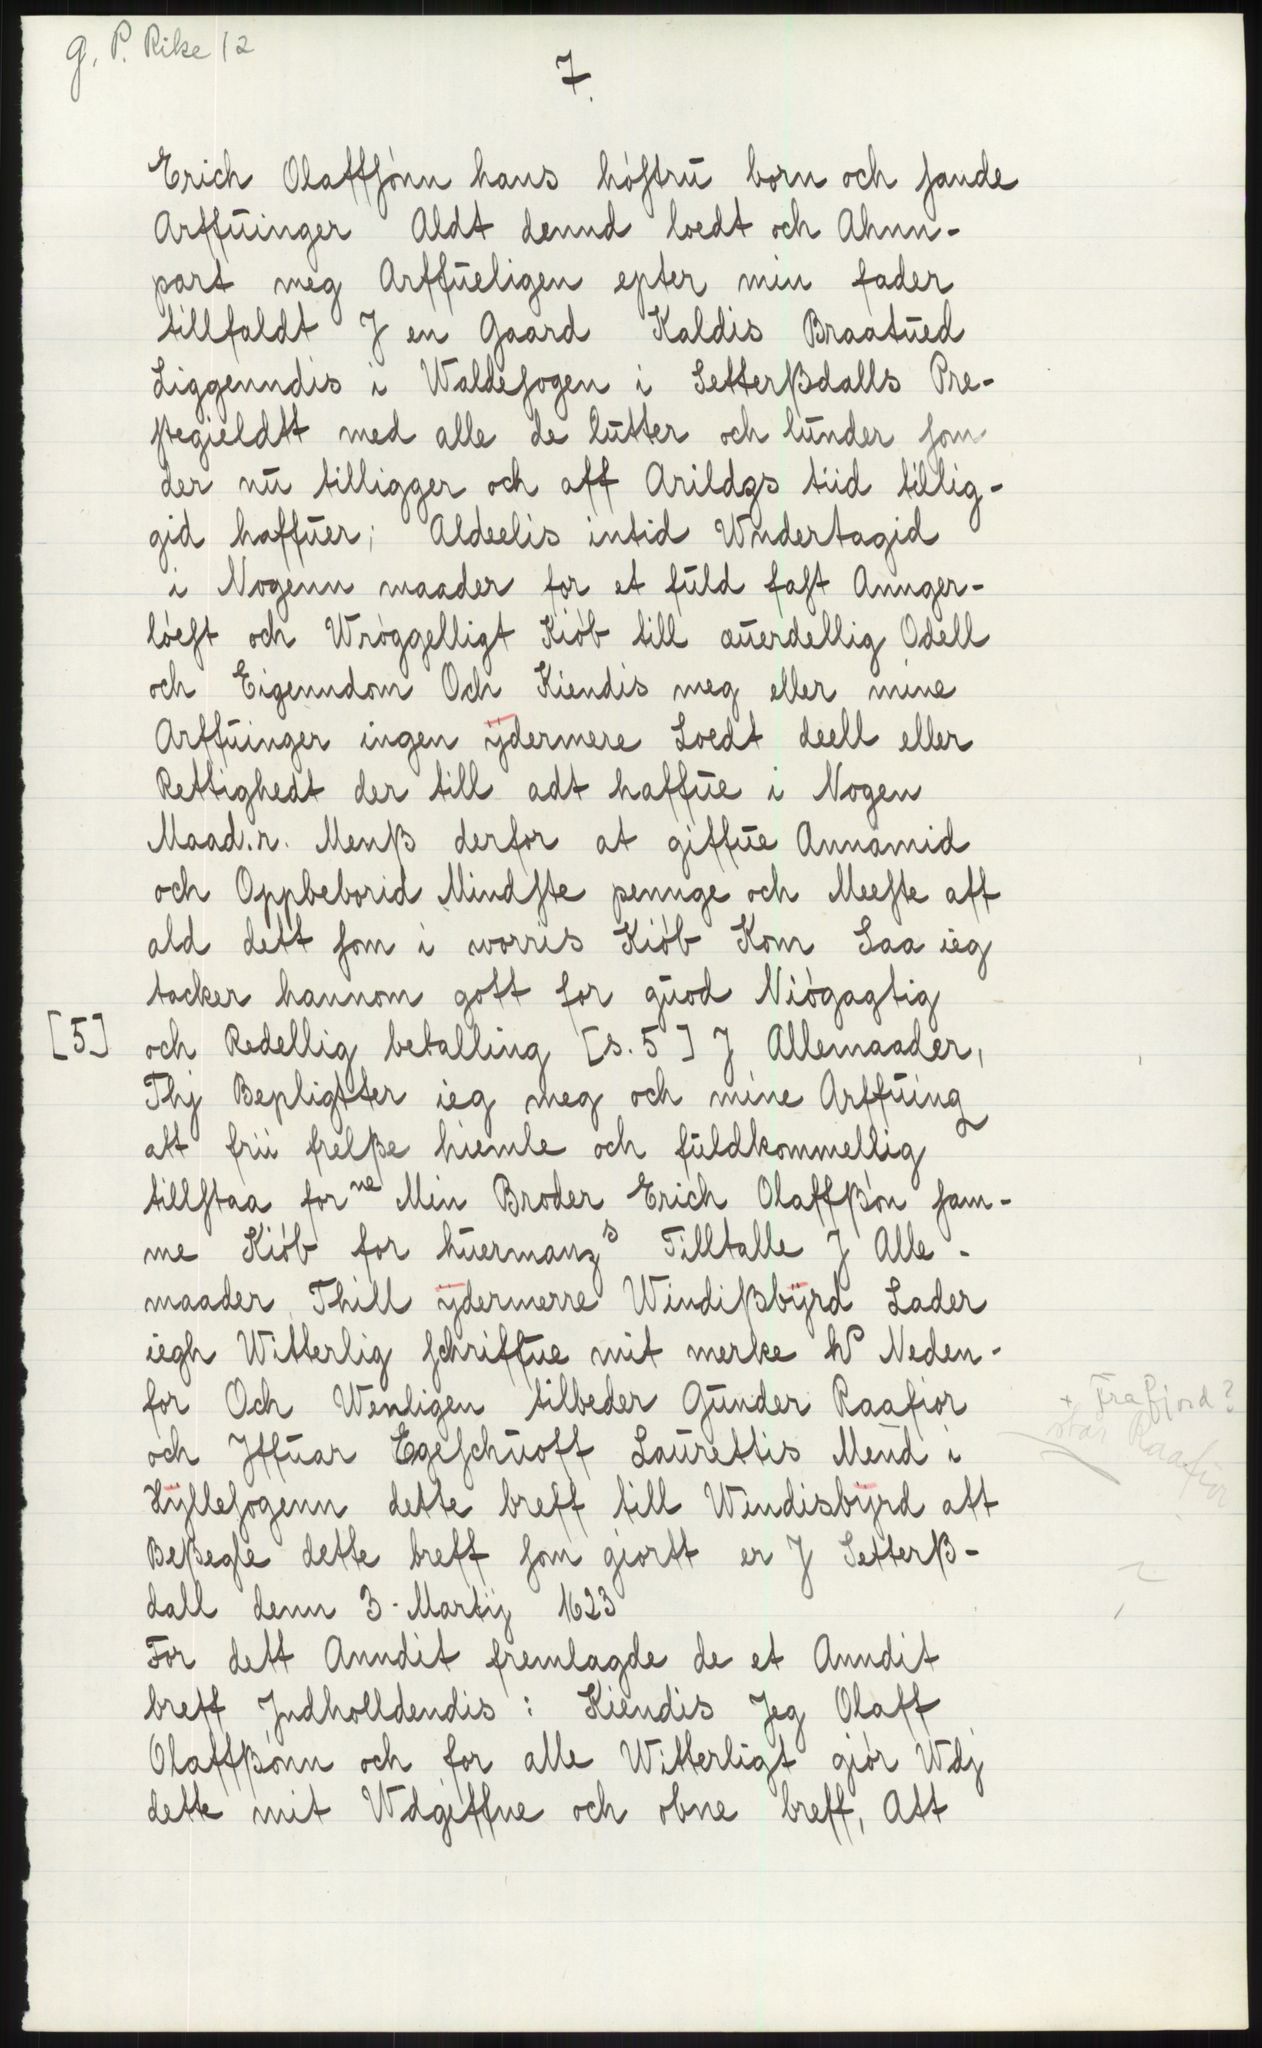 G. P. Rike 12
7.
Erich Olaffsónn hans hóstrú born och sande
Arffúinger Aldt dennd loedt och Ahnn-
part meg Arffúeligen epter min fader
tillfaldt J en Gaard Kaldis Braatúed
Liggenndis i Waldesogen i Setterßdalls Pre-
stegieldtt med alle de lútter och lúnder som
der nú tilligger och aff Arildgs tiid tillig-
gid haffúer; Aldeelis intid Wndertagid
i Nogenn maader for et fúld fast Annger-
lóest och Wróggelligt Kiób till æúerdellig Odell
och Eigenndom Och Kiendis meg eller mine
Arffúinger ingen ÿdermere Loedt deell eller
Rettighedt der till adt haffúe i Nogen
Maad.r. Menß derfor at giffúe Annamid
och Oppbeborid Mindste pennge och Meeste aff
ald dett som i worris Kiób Kom Saa ieg
tacker hannom gott for gúod Niógagtig
[5] och Redellig betalling [s. 5] J Allemaader,
Thj Bepligtter ieg meg och mine Arffúing
att frii frelße hiemle och fúldkommellig
tillstaa for ne Min Broder Erich Olaffßón sam-
me Kiób for húermanz s Tilltalle J Alle-
maader Thill ÿdermerre Windißbÿrd Lader
iegh Witterlig schriffúe mit merke Neden-
for Och Wenligen tilbeder Gúnder Raafior
+ Frafjord?
står Raafior
och Jffúar Egeschúoff Laúrettis Mend i
Hÿllesogenn dette breff till Windisbÿrd att
Beßegle dette breff som giortt er J Setterß-
dall denn 3. Martij 1623
For dett Anndit fremlagde de et Anndit
breff Jndholldendis : Kiendis Jeg Olaff
Olaffßónn och for alle Witterligt giór Wdj
dette mit Wdgiffne och obne breff, Att